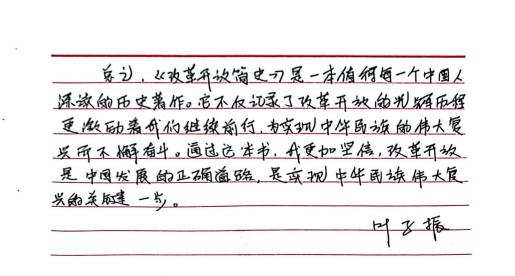 总之，《改革开放简史》是一本值得每一个中国人
深读的历史著作。它不仅记录了改革开放的光辉历程
更激励着我们继续前行，为实现中华民族的伟大复
兴而不懈奋斗。通过这本书，我更加坚信，改革开放
是中国发展的正确道路，是实现中华民族伟大复
兴的关键一步。
叶子振